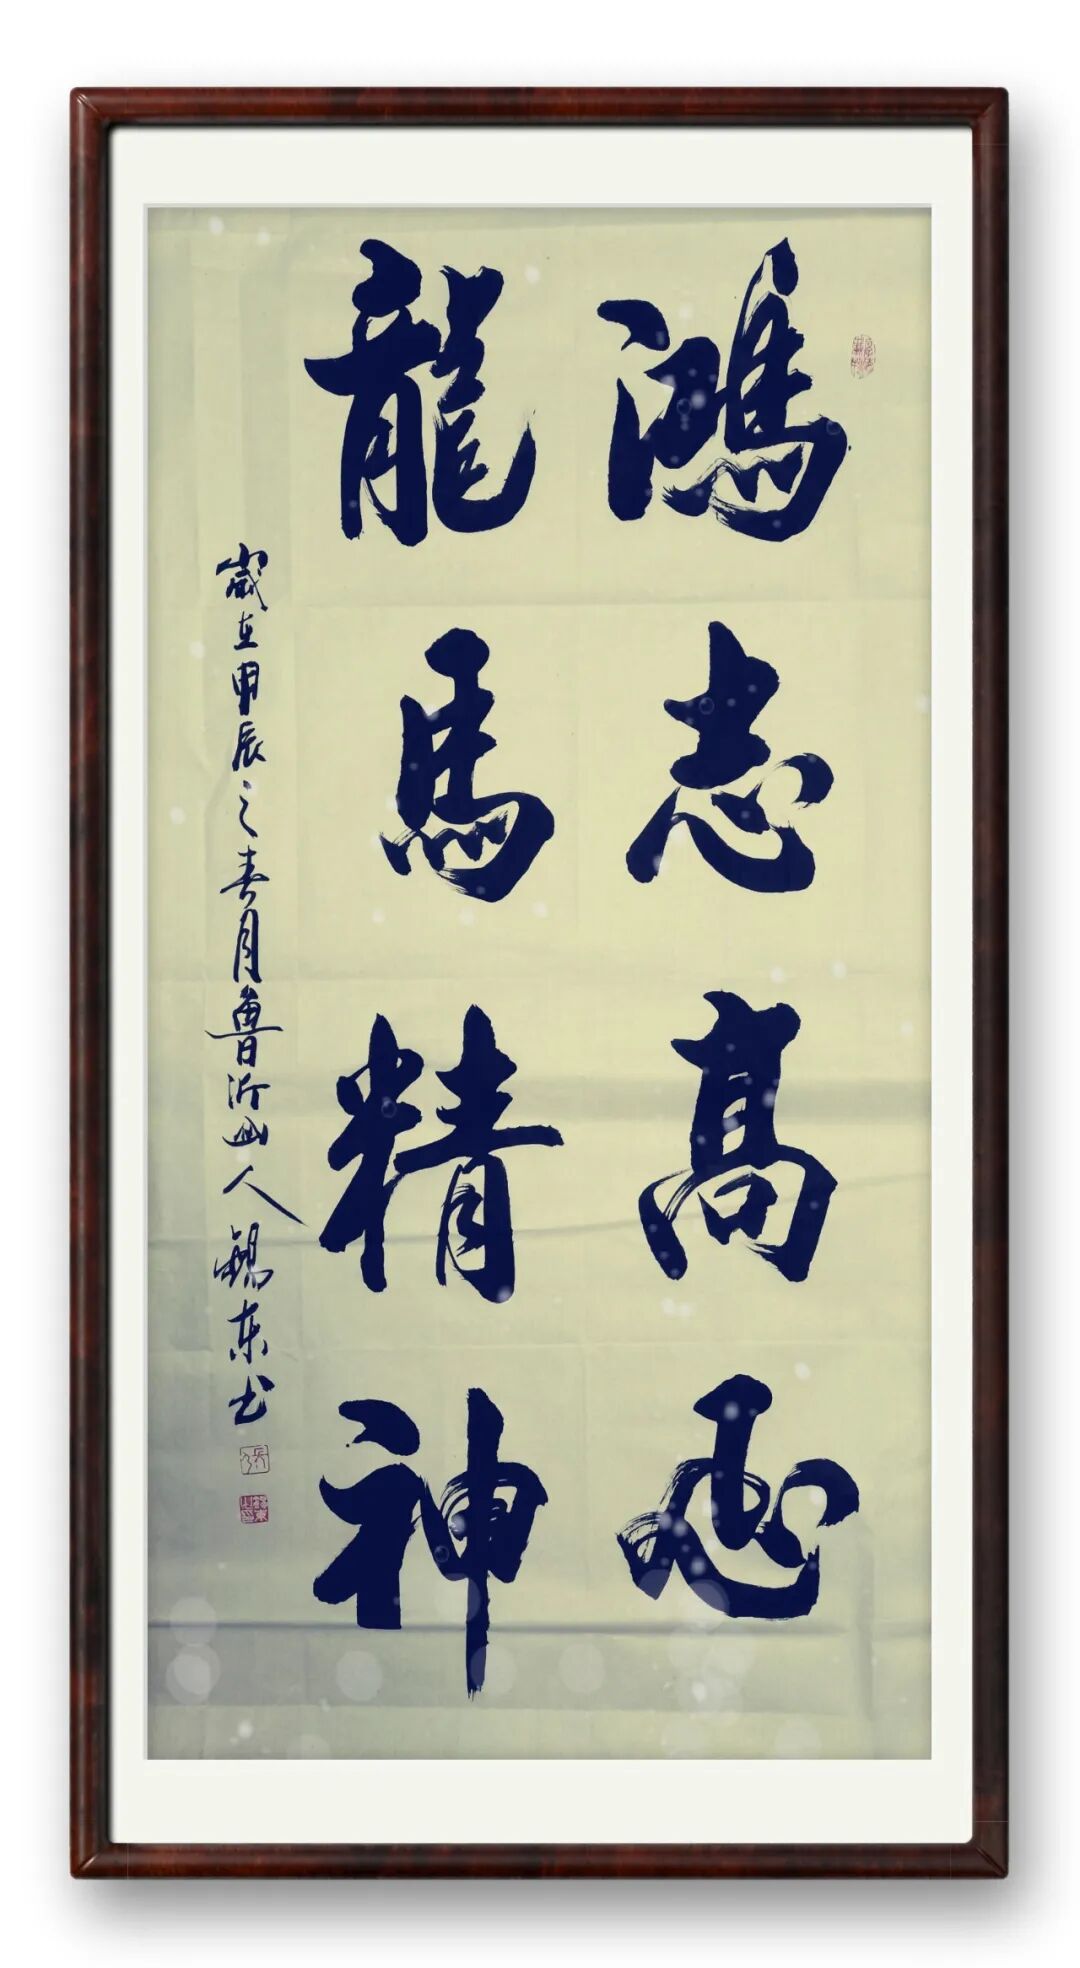 鴻志高
龍馬精神
歲在甲辰之春月魯沂山人錫东书